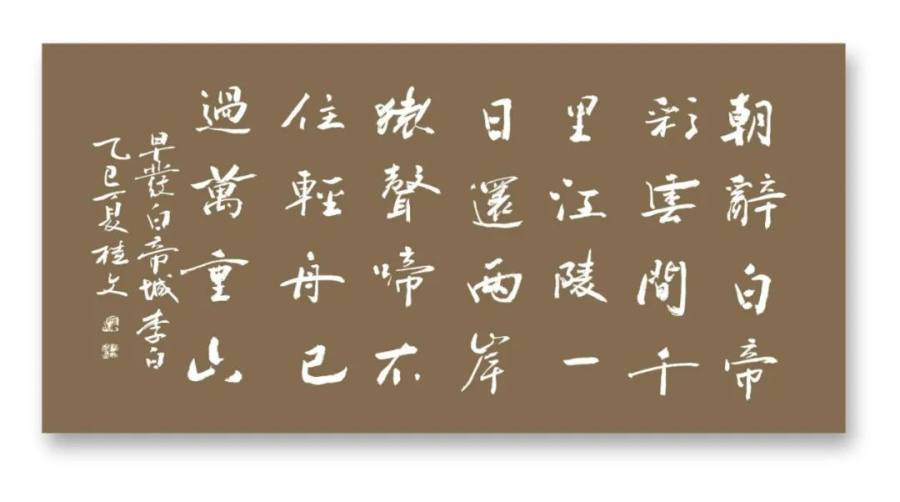 朝辭白帝
彩雲間千
里江陵一
日還兩岸
猿聲啼不
住輕舟已
過萬重山
早發白帝城 李白
乙巳夏 桂文